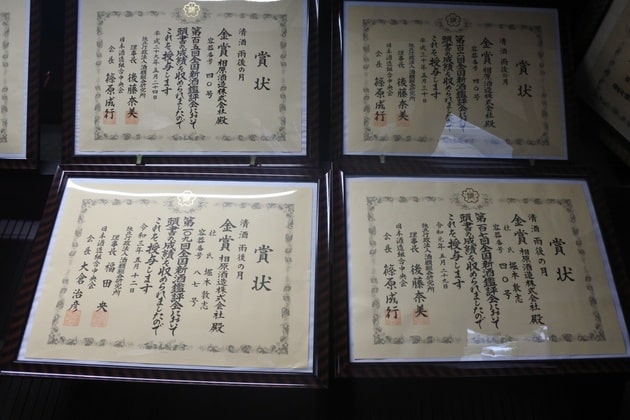 賞状
清酒 雨後の月
金賞 相原酒造株式会社 殿
容器番号 四〇号
第百五回全国新酒鑑評会において
頭書の成績を収められましたので
これを授与します
平成二十九年五月二十四日
独立行政法人酒類総合研究所
理事長 後藤奈美
日本酒造組合中央会
会長 篠原成行
賞状
清酒 雨後の月
金賞 相原酒造株式会社 殿
容器番号 四〇号
全国新酒鑑評会において
頭書の成績を収められましたので
これを授与します
独立行政法人酒類総合研究所
理事長 後藤奈美
日本酒造組合中央会
会長 篠原成行
賞状
清酒 雨後の月
金賞 相原酒造株式会社 殿
杜氏 堀本敦志
容器番号 八七号
第百九回全国新酒鑑評会において
頭書の成績を収められましたので
これを授与します
令和三年五月二十二日
独立行政法人酒類総合研究所
理事長 福田央
日本酒造組合中央会
会長 大倉治彦
賞状
清酒 雨後の月
金賞 相原酒造株式会社 殿
杜氏 堀本敦志
容器番号 四〇号
第百七回全国新酒鑑評会において
頭書の成績を収められましたので
これを授与します
令和元年五月二十九日
独立行政法人酒類総合研究所
理事長 後藤奈美
日本酒造組合中央会
会長 篠原成行